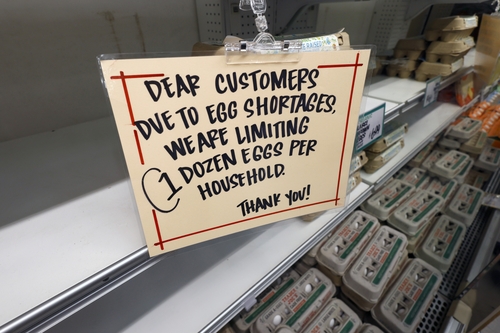 DEAR CUSTOMERS
DUE TO EGG SHORTAGES,
WE ARE LIMITING
1 DOZEN EGGS PER
HOUSEHOLD.
THANK YOU!